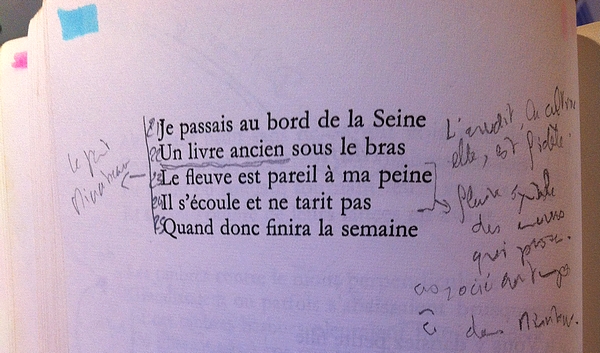 Je passais au bord de la Seine
Un livre ancien sous le bras
Le fleuve est pareil à ma peine
Il s'écoule et ne tarit pas
Quand donc finira la semaine
le pont
Mirabeau
elle, est fidèle.
fleuve symbole
des amours
qui passe.
associé au temps
dans Mirabeau.